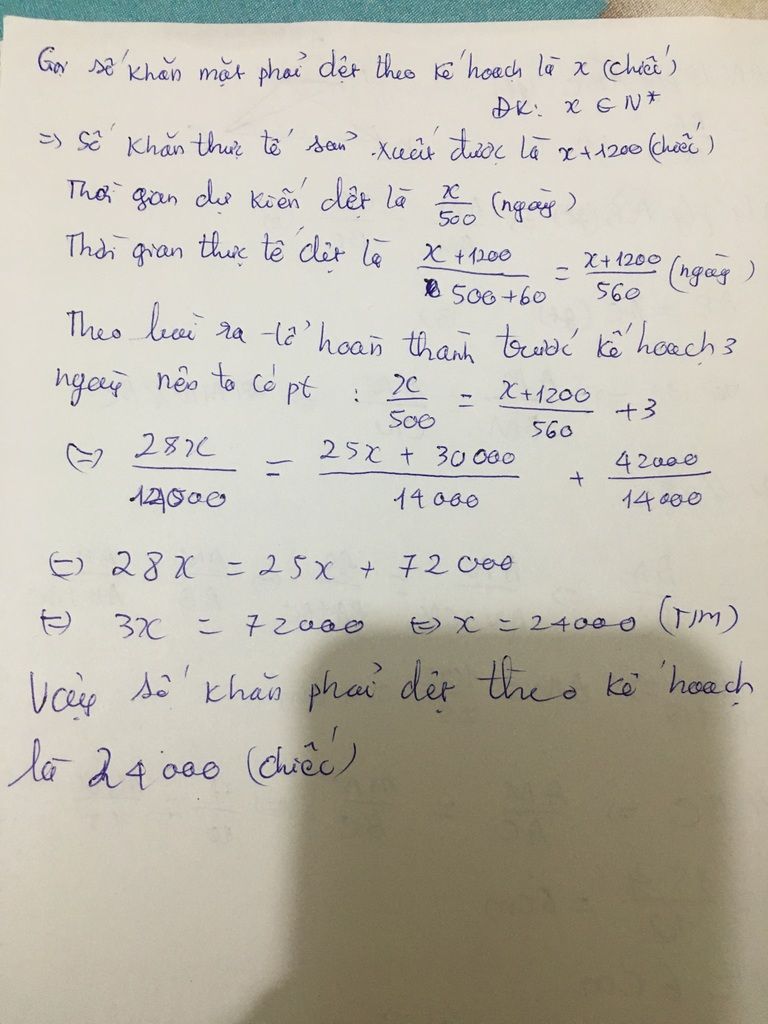 Gọi số khăn mặt phải dệt theo kế hoạch là x (chiếc)
ĐK: x ∈ N*
=> Số khăn thực tế sản xuất được là x+1200 (chiếc)
Thời gian dự kiến dệt là x/500 (ngày)
Thời gian thực tế dệt là (x+1200)/(500+60) = (x+1200)/560 (ngày)
Theo bài ra tổ hoàn thành trước kế hoạch 3
ngày nên ta có pt : x/500 = (x+1200)/560 + 3
(=) 28x/14000 = (25x + 30000)/14000 + 42000/14000
(=) 28x = 25x + 72000
(=) 3x = 72000 (=) x = 24000 (T/m)
Vậy số khăn phải dệt theo kế hoạch
là 24000 (chiếc)